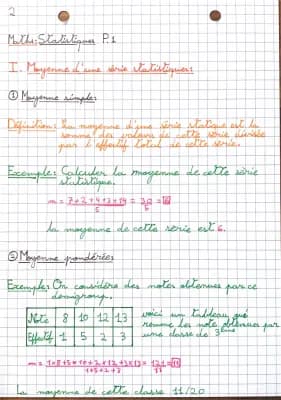 2
Maths: Statistiques P.1
I. Moyenne d'une série statistiques:
① Moyenne simple:
Définition: La moyenne d'une série statique est la
somme des valeurs de cette série divisée
par l'effectif total de cette série.
Exemple: Calculer la moyenne de cette série
statistique.
m = 7+2+4+3+14 = 30 = 6
5 5
la moyenne de cette serie est 6.
② Moyenne pondérée:
Exemple: On considère des notes obtenues par ce
demigroup.
Note 8 10 12 13
Effectif 1 5 2 3
voici un tableau qui
resume les note obtenues par
une classe de 3ème
m = 1×8+5×10+2×12+3×13 = 121 = 11
1+5+2+3 11
La moyenne de cette classe 11/20